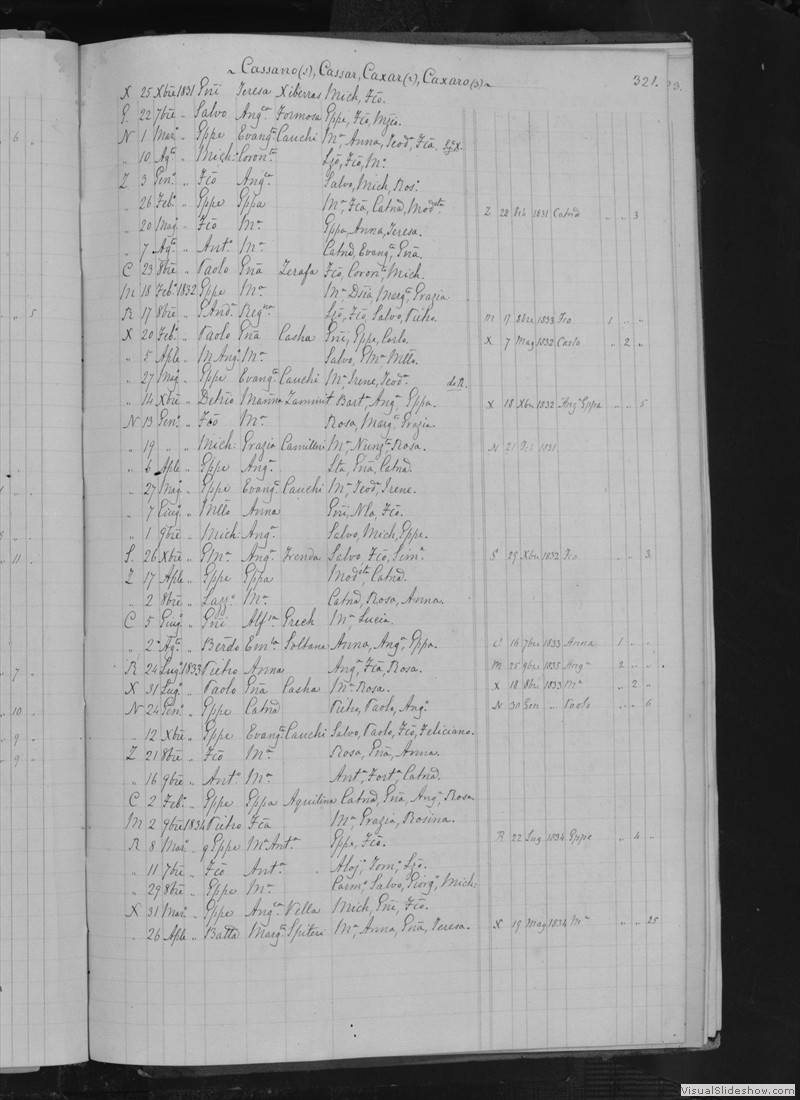 ~ Cassano(s), Cassar, Caxar(2), Caxaro(3) ~ 321. 23.
X 25 Xbre 1831 Gnñi Teresa Xiberras Mich, Fcõ.
G. 22 7bre „ Salvo Angca Formosa Gppe, Fcõ,
N 1 Marzo „ Gppe Evanga Cauchi Ma, Anna, Teoda, Fcã.
„ 10 Ago „ Mich: Coronta Lzõ, Fcõ, Ma
Z 3 Geno „ Fcõ Anga Salvo, Mich, Rosa
„ 26 Febo „ Gppe Gppa Ma, Fcã, Catnã, Modsta Z 28 Feb 1831 Catnã „ „ 3
„ 20 Mago „ Fcõ Ma Gppa, Anna, Teresa.
„ 7 Ago „ Anto Ma Catnã, Evanga, Gnã.
C 23 8bre „ Paolo Gnã Zerafa Fcõ, Corona, Mich.
M 18 Febo 1832 Gppe Ma Ma, Marga, Grazia
R 17 8bre „ Andr Regna Lzõ, Fcõ, Salvo, Pietro. M 17 8bre 1833 Fco 1 „ „
X 20 Febo „ Paolo Gnã Casha Gnñi, Gppe, Carlo. X 7 Mag 1832 Carlo „ 2 „
„ 5 Aple „ M.Ango Ma Salvo, Mtto.
„ 27 Mago „ Gppe Evanga Cauchi Ma, Irene, Teoda de R.
„ 14 Xbre „ Zammit Barta, Anga, Gppa. X 18 Xbre 1832 Anga Gppa „ „ 5
N 13 Geno „ Fcõ Ma Rosa, Marga, Grazia.
„ 19 „ „ Mich: Grazia Camilleri Ma, Nunza, Rosa. N 21 1831
„ 6 Aple „ Gppe Anga Gnã, Catnã.
„ 27 Mago „ Gppe Evanga Cauchi Ma, Teoda, Irene.
„ 7 Giugo „ Mttõ Anna Gnñi, Nla, Fcõ.
„ 1 9bre „ Mich: Anga Salvo, Mich, Gppe.
S. 26 Xbre „ Anga Trenda Salvo, Fcõ, S 29 Xbre 1832 Fco „ „ 3.
Z 17 Aple „ Gppe Gppa Modsta, Catnã.
„ 2 8bre „ Lazzo Ma Catnã, Rosa, Anna.
C 5 Giugo „ Gnñi Alfsa Grech Ma, Lucia.
„ 2 Ago „ Soltana Anna, Anga, Gppa. C 16 7bre 1833 Anna 1 „ „
R 24 Lugo 1833 Pietro Anna Anga, Fcã, Rosa. M 25 9bre 1835 Anga 2 „ „
X 31 Lugo „ Paolo Gnã Casha Ma, Rosa. X 18 8bre 1833 Ma „ 2 „
N 24 Geno „ Gppe Catnã Pietro, Paolo, Ango N 30 Gen „ Paolo „ „ 6
„ 12 Xbre „ Gppe Evanga Cauchi Salvo, Paolo, Fcõ, Feliciano.
Z 21 8bre „ Fcõ Ma Rosa, Gnã, Anna.
„ 16 9bre „ Anto Ma Anta, Forta, Catnã.
C 2 Febo „ Gppe Gppa Aquilina Catnã, Gnã, Anga, Rosa.
M 2 9bre 1834 Pietro Fcã Ma, Grazia, Rosina.
R 8 Marzo „ q Gppe Ma Anta Gppe, Fcõ. R 22 Lug 1834 Gppe „ 4 „
„ 11 7bre „ Fcõ Anta Tomo, Lzõ.
„ 29 8bre „ Gppe Ma Carmo, Salvo, Giorgo, Mich:
X 31 Marzo „ Gppe Angca Vella Mich, Gnñi, Fcõ.
„ 26 Aple „ Batta Marga Spiteri Ma, Anna, Gnã, Teresa. X 19 Mag 1834 Ma „ „ 25
6
„ „ 5
„ 11
„ 7
„ 10
„ 9
„ 9
VisualSlideshow.com